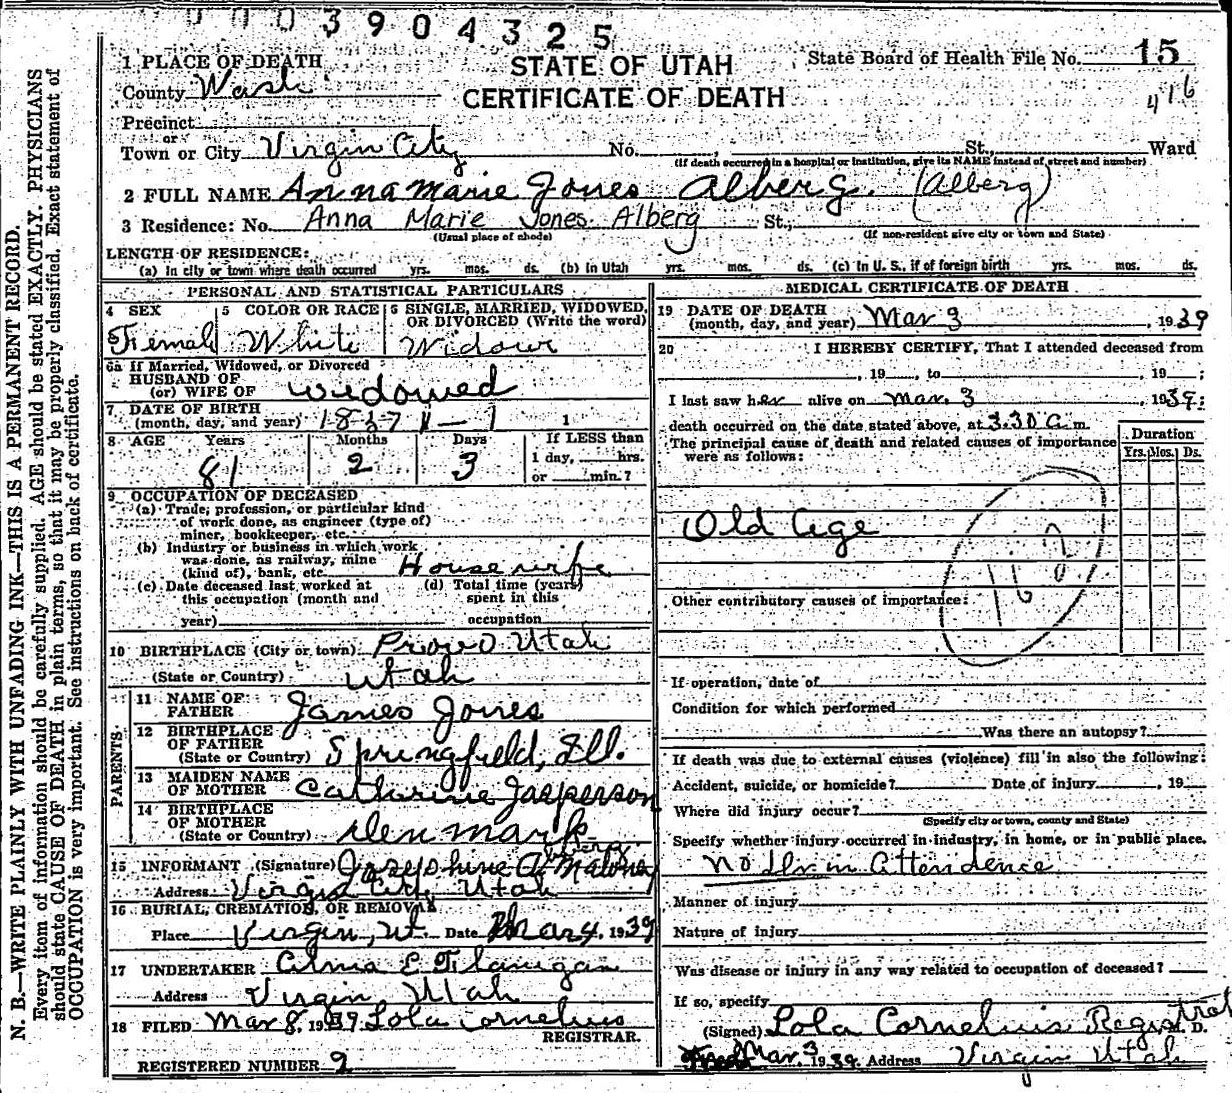 0003904325
1 PLACE OF DEATH
STATE OF UTAH
State Board of Health File No. 15
County Wash
CERTIFICATE OF DEATH
416
Precinct
or
Town or City Virgin City No. St., Ward
(If death occurred in a hospital or institution, give its NAME instead of street and number)
2 FULL NAME Anna Marie Jones Alberg. (Alberg)
3 Residence: No. Anna Marie Jones Alberg St.,
(Usual place of abode) (If non-resident give city or town and State)
LENGTH OF RESIDENCE:
(a) In city or town where death occurred yrs. mos. ds. (b) In Utah yrs. mos. ds. (c) In U. S., if of foreign birth yrs. mos. ds.
PERSONAL AND STATISTICAL PARTICULARS
4 SEX 5 COLOR OR RACE 6 SINGLE, MARRIED, WIDOWED, OR DIVORCED (Write the word)
Female White Widow
6a If Married, Widowed, or Divorced
HUSBAND OF
(or) WIFE OF widowed
7 DATE OF BIRTH
(month, day, and year) 1837 11 - 1 1
8 AGE Years Months Days If LESS than
81 2 3 1 day, hrs.
or min.?
9 OCCUPATION OF DECEASED
(a) Trade, profession, or particular kind
of work done, as engineer (type of)
miner, bookkeeper, etc.
(b) Industry or business in which work
was done, as railway, mine
(kind of), bank, etc. Housewife
(c) Date deceased last worked at (d) Total time (years)
this occupation (month and spent in this
year) occupation
10 BIRTHPLACE (City or town) Provo Utah
(State or Country) Utah
PARENTS
11 NAME OF
FATHER James Jones
12 BIRTHPLACE
OF FATHER
(State or Country) Springfield, Ill.
13 MAIDEN NAME
OF MOTHER Catharine Jasperson
14 BIRTHPLACE
OF MOTHER
(State or Country) Denmark
15 INFORMANT (Signature) Josephine A Maloney
Address Virgin City, Utah
16 BURIAL, CREMATION, OR REMOVAL
Place Virgin, Ut. Date Mar 4, 1939
17 UNDERTAKER Alma E Flanigan
Address Virgin Utah
18 FILED Mar 8, 1939 Lola Cornelius
REGISTRAR.
REGISTERED NUMBER 2
MEDICAL CERTIFICATE OF DEATH
19 DATE OF DEATH
(month, day, and year) Mar 3, 1939
20 I HEREBY CERTIFY, That I attended deceased from
, 19 , to , 19 ;
I last saw her alive on Mar. 3 1939;
death occurred on the date stated above, at 3.30 a.m.
The principal cause of death and related causes of importance
were as follows:
Duration
Yrs. Mos. Ds.
Old age
162
Other contributory causes of importance:
If operation, date of
Condition for which performed
Was there an autopsy?
If death was due to external causes (violence) fill in also the following:
Accident, suicide, or homicide? Date of injury , 19
Where did injury occur?
(Specify city or town, county and State)
Specify whether injury occurred in industry, in home, or in public place.
No Dr. in Attendence
Manner of injury
Nature of injury
Was disease or injury in any way related to occupation of deceased?
If so, specify
(Signed) Lola Cornelius Registrar M. D.
Mar 3 1939 Address Virgin Utah
N. B.—WRITE PLAINLY WITH UNFADING INK—THIS IS A PERMANENT RECORD.
Every item of information should be carefully supplied. AGE should be stated EXACTLY. PHYSICIANS
should state CAUSE OF DEATH in plain terms, so that it may be properly classified. Exact statement of
OCCUPATION is very important. See instructions on back of certificate.